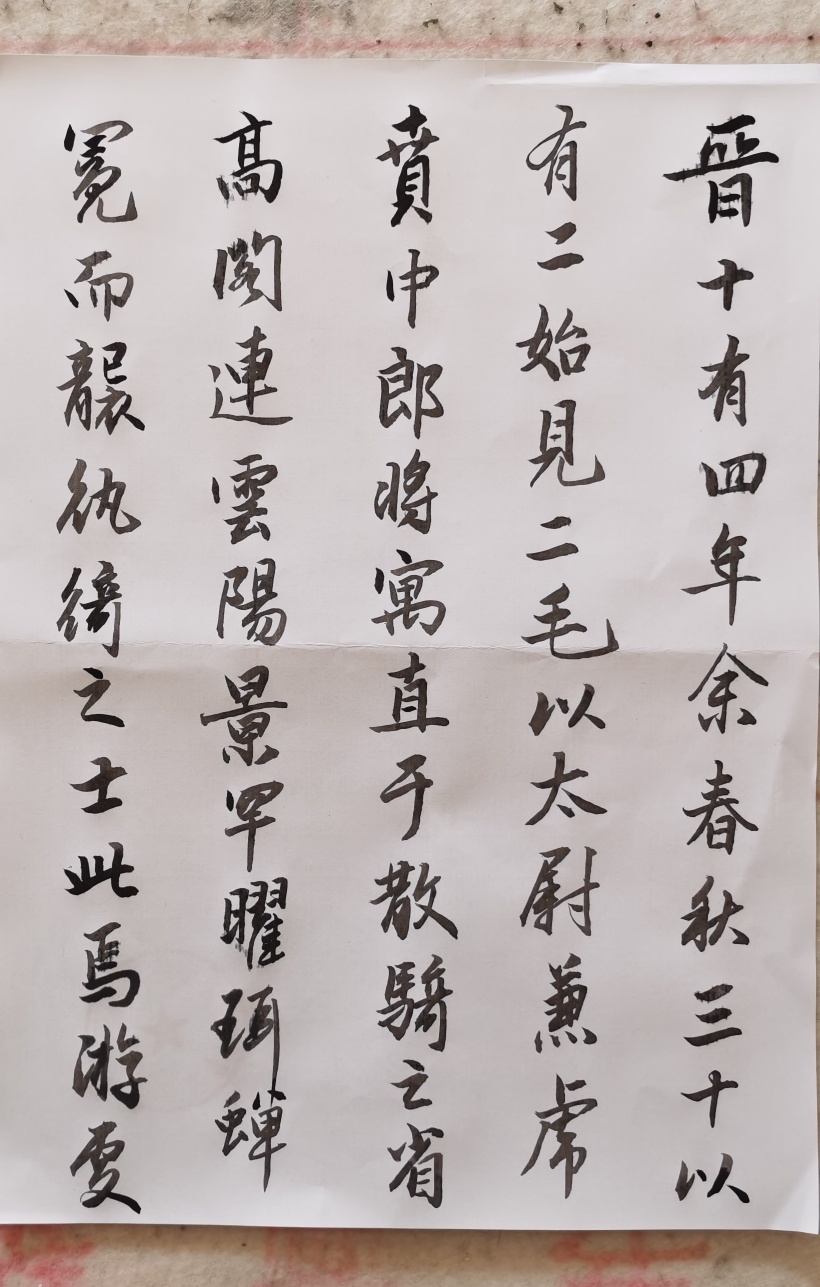 晉十有四年余春秋三十以
有二始見二毛以太尉兼虎
賁中郎將寓直于散騎之省
高閣連雲陽景罕曜珥蟬
冕而襲紈綺之士此焉游處